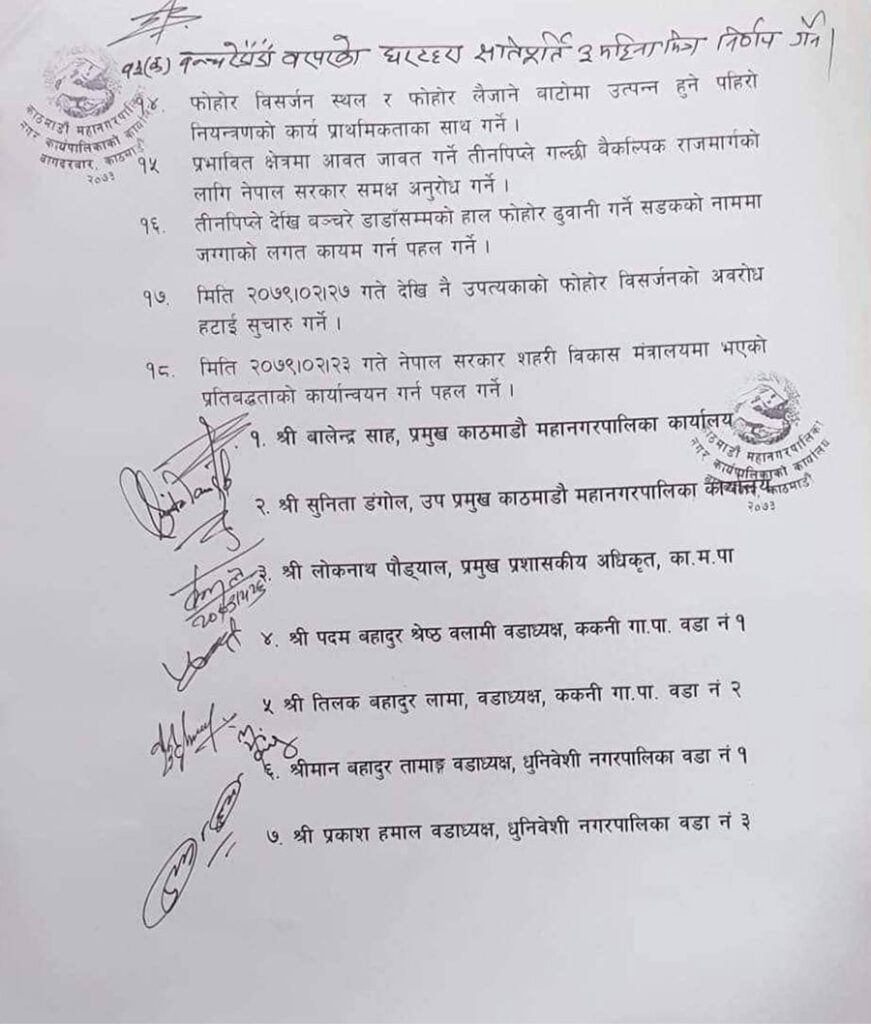 १३(क) वन्चरेडाँडा वरपरको घरटहरा क्षतिपूर्ति ३ महिना भित्र निर्णय गर्ने।
काठमाडौं महानगरपालिका
नगर कार्यपालिकाको कार्यालय
बागदरबार, काठमाडौं
२०७३
१४. फोहोर विसर्जन स्थल र फोहोर लैजाने बाटोमा उत्पन्न हुने पहिरो
नियन्त्रणको कार्य प्राथमिकताका साथ गर्ने ।
१५ प्रभावित क्षेत्रमा आवत जावत गर्ने तीनपिप्ले गल्छी वैकल्पिक राजमार्गको
लागि नेपाल सरकार समक्ष अनुरोध गर्ने ।
१६. तीनपिप्ले देखि बञ्चरे डाडाँसम्मको हाल फोहोर ढुवानी गर्ने सडकको नाममा
जग्गाको लगत कायम गर्न पहल गर्ने ।
१७. मिति २०७९।०२।२७ गते देखि नै उपत्यकाको फोहोर विसर्जनको अवरोध
हटाई सुचारु गर्ने ।
१८. मिति २०७९।०२।२३ गते नेपाल सरकार शहरी विकास मंत्रालयमा भएको
प्रतिबद्धताको कार्यान्वयन गर्न पहल गर्ने ।
१. श्री बालेन्द्र साह, प्रमुख काठमाडौ महानगरपालिका कार्यालय
काठमाडौं महानगरपालिका
नगर कार्यपालिकाको कार्यालय
काठमाडौं
२०७३
२. श्री सुनिता डंगोल, उप प्रमुख काठमाडौ महानगरपालिका कार्यालय
३. श्री लोकनाथ पौड्याल, प्रमुख प्रशासकीय अधिकृत, का.म.पा
४. श्री पदम बहादुर श्रेष्ठ वलामी वडाध्यक्ष, ककनी गा.पा. वडा नं १
५ श्री तिलक बहादुर लामा, वडाध्यक्ष, ककनी गा.पा. वडा नं २
६. श्रीमान बहादुर तामाङ्ग वडाध्यक्ष, धुनिवेशी नगरपालिका वडा नं १
७. श्री प्रकाश हमाल वडाध्यक्ष, धुनिवेशी नगरपालिका वडा नं ३